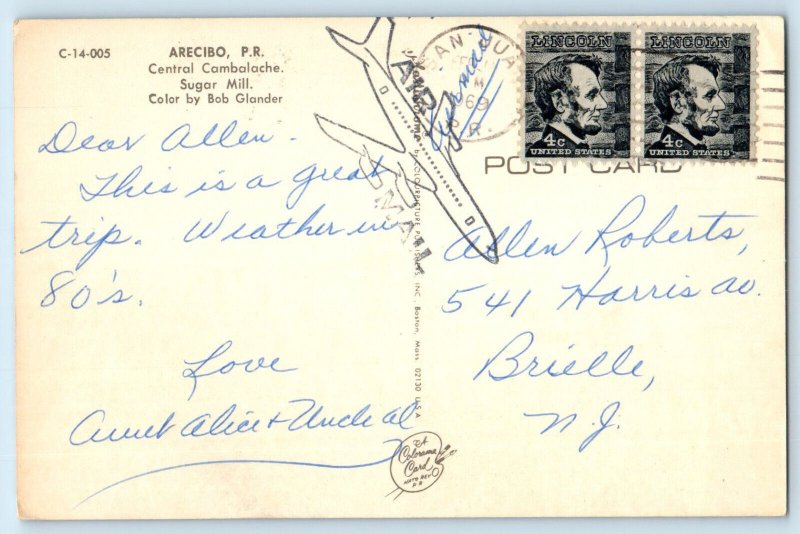 C-14-005
ARECIBO, P.R.
Central Cambalache.
Sugar Mill.
Color by Bob Glander
Dear Allen -
This is a great
trip. Weather in
80's.
Love
Aunt Alice & Uncle Al
AIR
MAIL
SAN JUA
1969
P.R.
LINCOLN
4c
UNITED STATES
LINCOLN
4c
UNITED STATES
POST CARD
Allen Roberts,
541 Harris av.
Brielle,
N.J.
by COLOURPICTURE PUBLISHERS, INC., Boston, Mass. 02130 U.S.A.
A
Colorama
Card